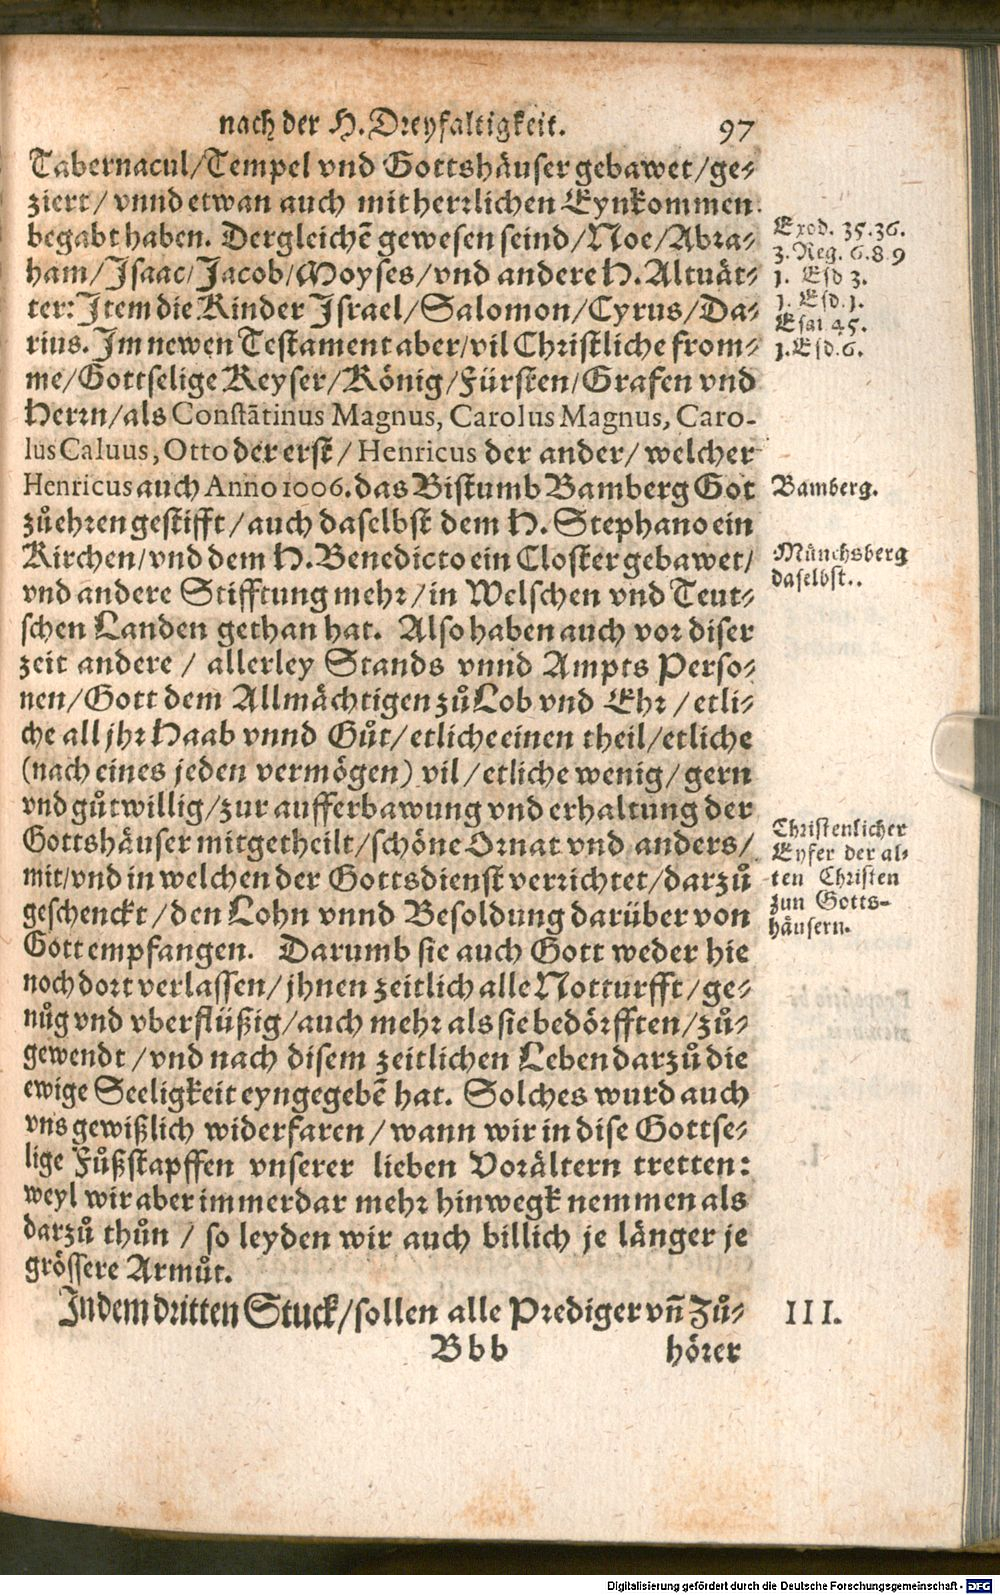 nach der H. Dreyfaltigkeit. 97
Tabernacul/Tempel vnd Gottshäuser gebawet/ge-
ziert/ vnnd etwan auch mit herrlichen Eynkommen
begabt haben. Dergleichē gewesen seind/Noe/Abra-
ham/Isaac/Jacob/Moyses/vnd andere H. Altuät-
ter: Item die Kinder Israel/Salomon/Cyrus/Da-
rius. Im newen Testament aber/vil Christliche from-
me/Gottselige Keyser/König/Fürsten/Grafen vnd
Herrn/als Constãtinus Magnus, Carolus Magnus, Caro-
lus Caluus, Otto der erst/ Henricus der ander/ welcher
Henricus auch Anno 1006. das Bistumb Bamberg Got
zů ehren gestifft/auch daselbst dem H. Stephano ein
Kirchen/vnd dem H. Benedicto ein Closter gebawet/
vnd andere Stifftung mehr/in Welschen vnd Teut-
schen Landen gethan hat. Also haben auch vor diser
zeit andere / allerley Stands vnnd Ampts Perso-
nen/Gott dem Allmächtigen zů Lob vnd Ehr /etli-
che all jhr Haab vnnd Gůt/etliche einen theil/etliche
(nach eines jeden vermögen) vil/etliche wenig/gern
vnd gůtwillig/zur aufferbawung vnd erhaltung der
Gottshäuser mitgetheilt/schöne Ornat vnd anders/
mit/vnd in welchen der Gottsdienst verrichtet/darzů
geschenckt/den Lohn vnnd Besoldung darüber von
Gott empfangen. Darumb sie auch Gott weder hie
noch dort verlassen/jhnen zeitlich alle Notturfft/ge-
nůg vnd vberflüßig/auch mehr als sie bedörfften/zů-
gewendt/vnd nach disem zeitlichen Leben darzů die
ewige Seeligkeit eyngegebē hat. Solches wurd auch
vns gewißlich widerfaren/wann wir in dise Gottse-
lige Fůßstapffen vnserer lieben Vorältern tretten:
weyl wir aber immerdar mehr hinwegk nemmen als
darzů thůn / so leyden wir auch billich je länger je
grössere Armůt.
In dem dritten Stuck/sollen alle Prediger vñ Zů-
Bbb hörer
Exod. 35.36.
3. Reg. 6.8 9
1. Esd 3.
1. Esd. 1.
Esai 45.
1. Esd. 6.
Bamberg.
Münchsberg
daselbst..
Christenlicher
Eyfer der al-
ten Christen
zun Gotts-
häusern.
III.
Digitalisierung gefördert durch die Deutsche Forschungsgemeinschaft - DFG